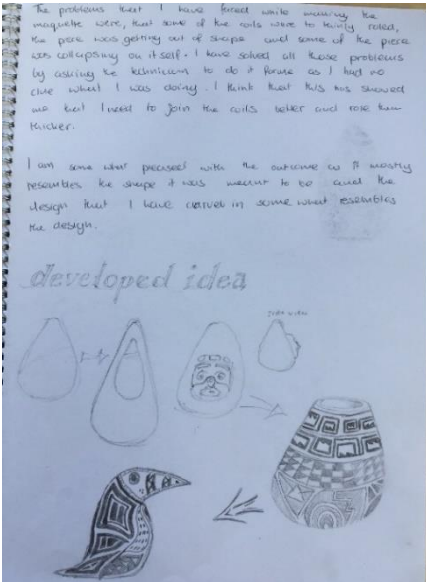 The problems that I have faced while making the
maquette were, that some of the coils were to thinly roled,
the piece was getting out of shape and some of the piece
was collapsing on it self. I have solved all those problems
by asking the technicium to do it forme as I had no
clue what I was doing. I think that this has showed
me that I need to join the coils better and role them
thicker.
I am some what pleased with the outcome as it mostly
resembles the shape it was meant to be and the
design that I have carved in some what resembles
the design.
developed idea
SIDE VIEW